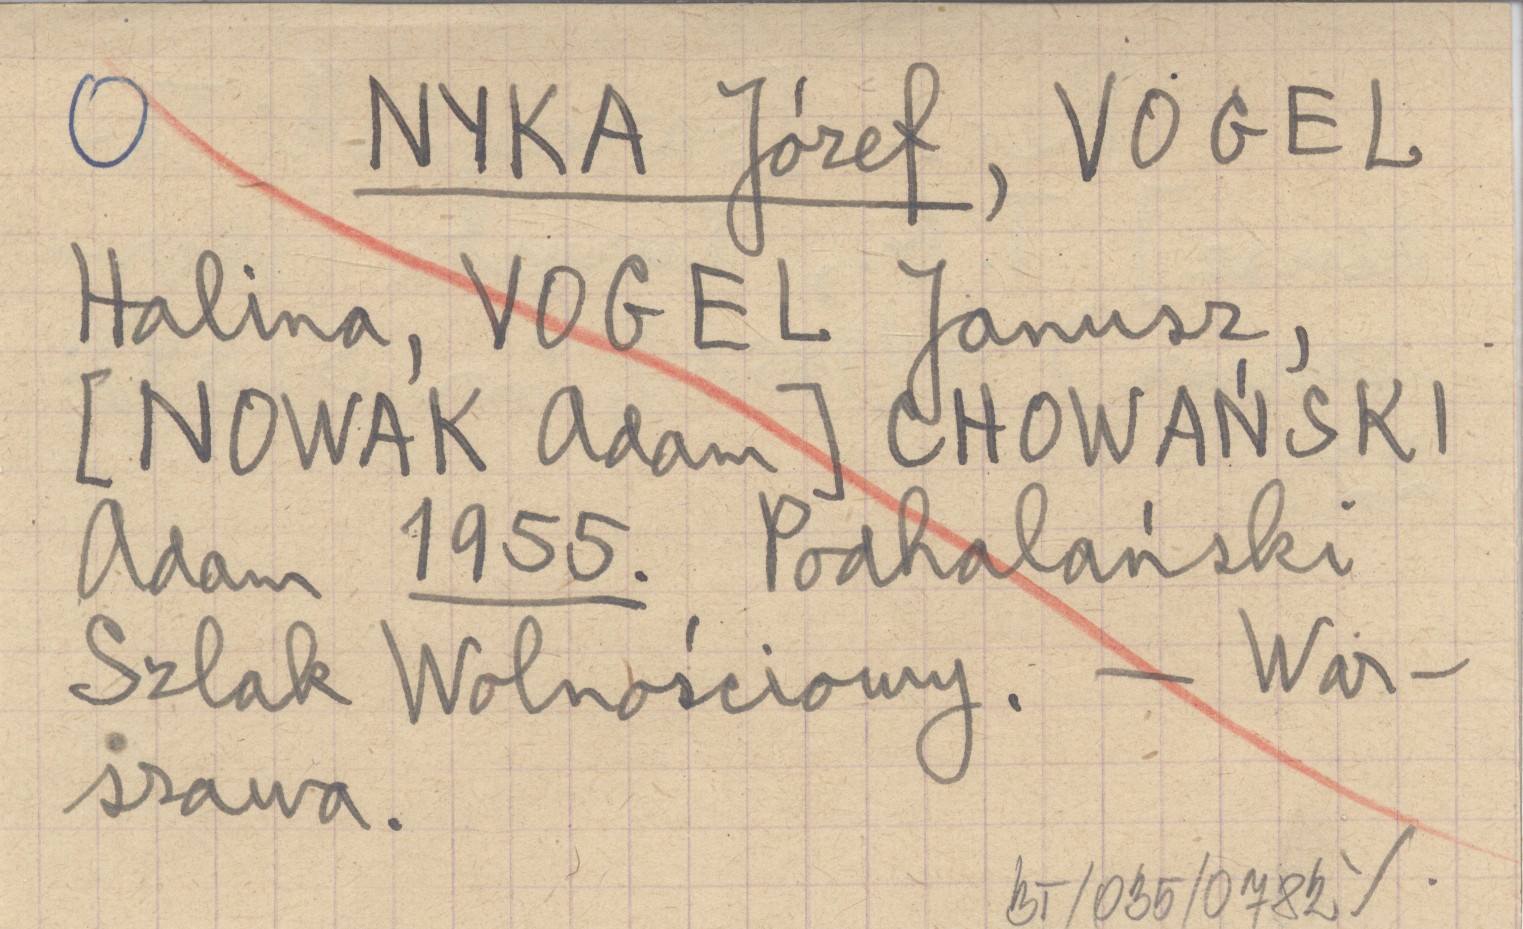 O NYKA Józef, VOGEL
Halina, VOGEL Janusz,
[NOWAK Adam] CHOWAŃSKI
Adam 1955. Podhalański
Szlak Wolnościowy. — War-
szawa.
BT/035/0782